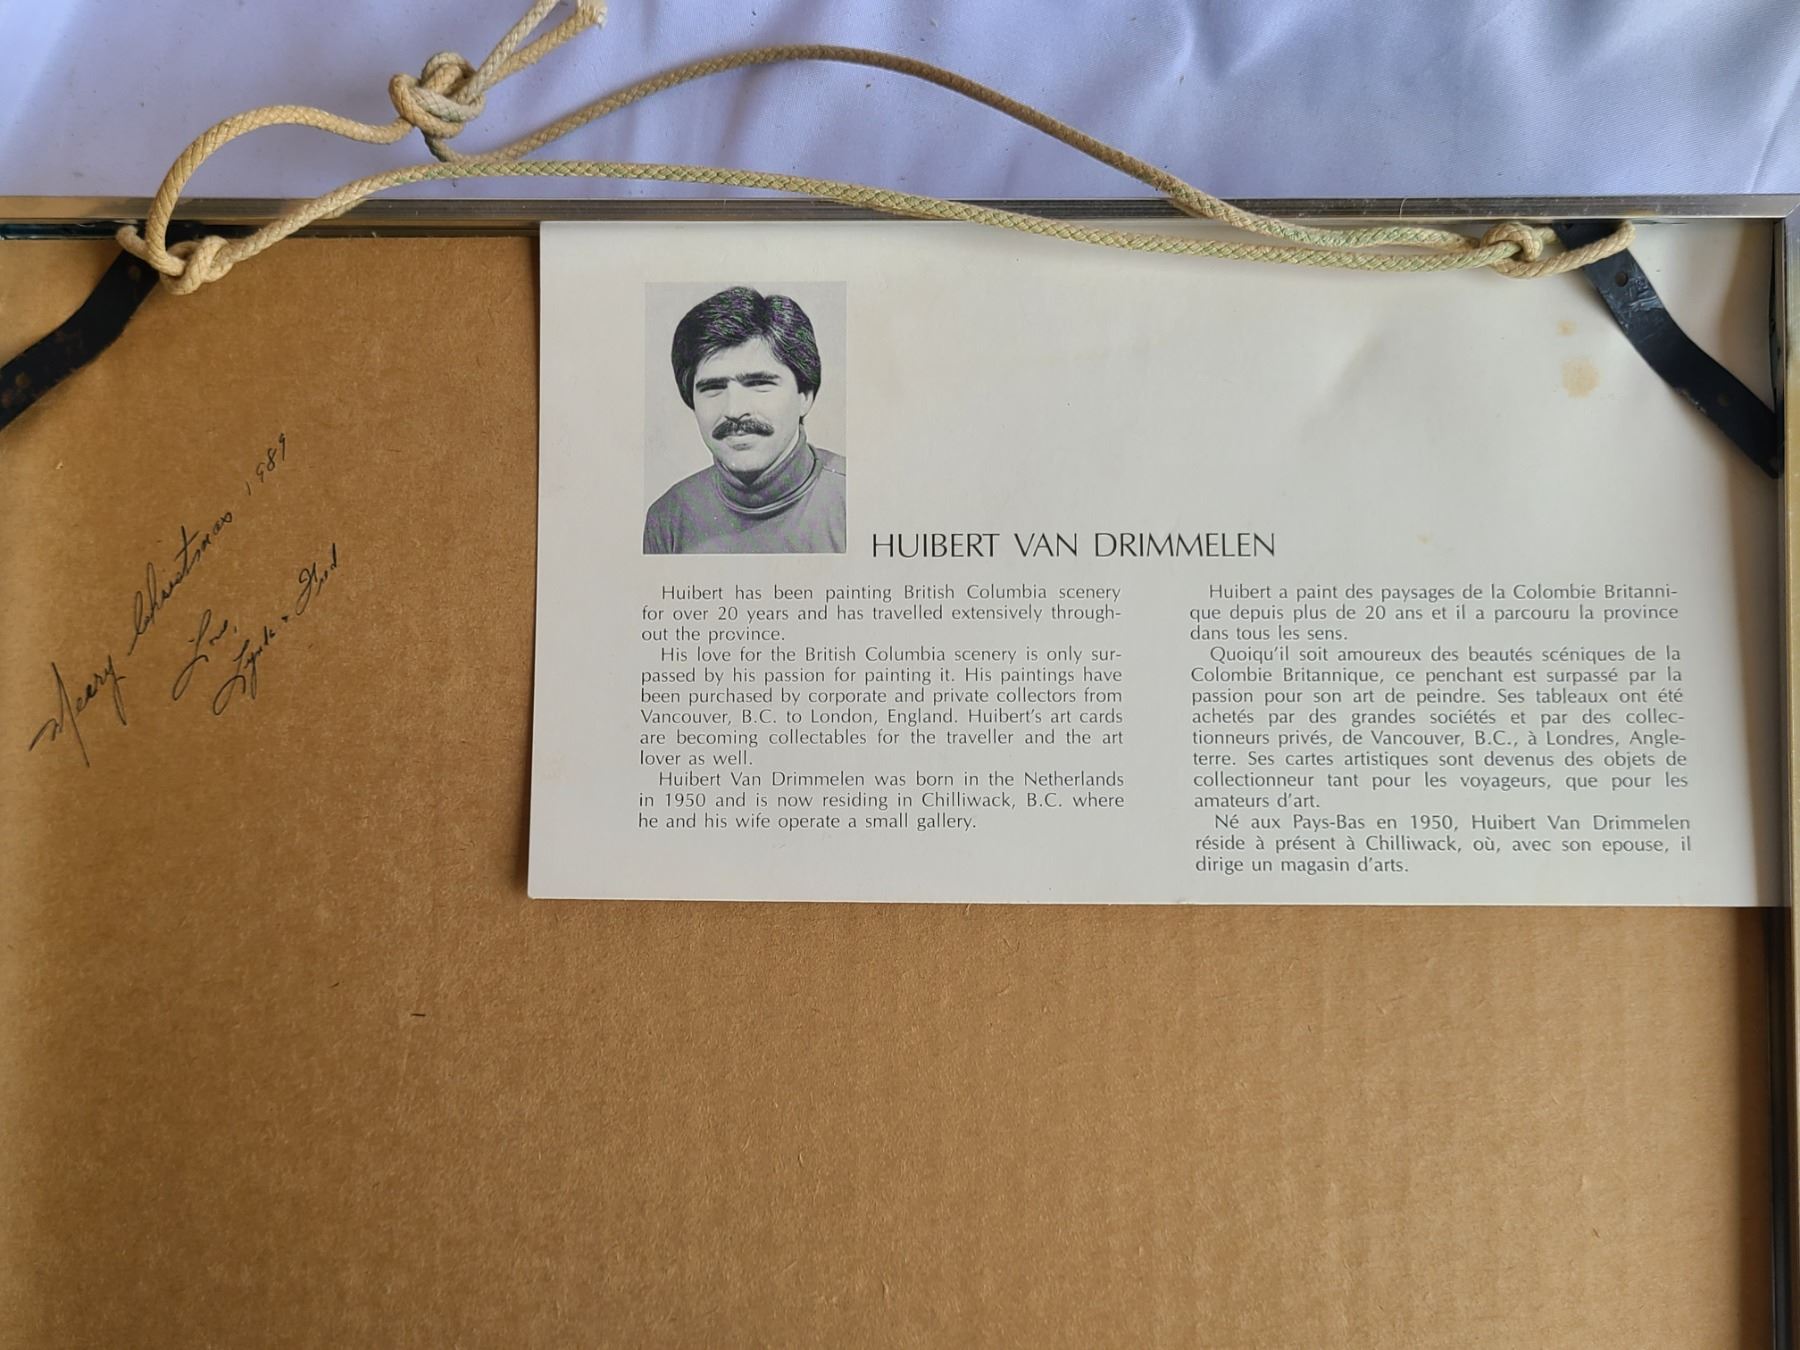 Merry Christmas 1989
Love,
HUIBERT VAN DRIMMELEN
Huibert has been painting British Columbia scenery
for over 20 years and has travelled extensively through-
out the province.
His love for the British Columbia scenery is only sur-
passed by his passion for painting it. His paintings have
been purchased by corporate and private collectors from
Vancouver, B.C. to London, England. Huibert's art cards
are becoming collectables for the traveller and the art
lover as well.
Huibert Van Drimmelen was born in the Netherlands
in 1950 and is now residing in Chilliwack, B.C. where
he and his wife operate a small gallery.
Huibert a paint des paysages de la Colombie Britanni-
que depuis plus de 20 ans et il a parcouru la province
dans tous les sens.
Quoiqu'il soit amoureux des beautés scéniques de la
Colombie Britannique, ce penchant est surpassé par la
passion pour son art de peindre. Ses tableaux ont été
achetés par des grandes sociétés et par des collec-
tionneurs privés, de Vancouver, B.C., à Londres, Angle-
terre. Ses cartes artistiques sont devenus des objets de
collectionneur tant pour les voyageurs, que pour les
amateurs d'art.
Né aux Pays-Bas en 1950, Huibert Van Drimmelen
réside à présent à Chilliwack, où, avec son epouse, il
dirige un magasin d'arts.